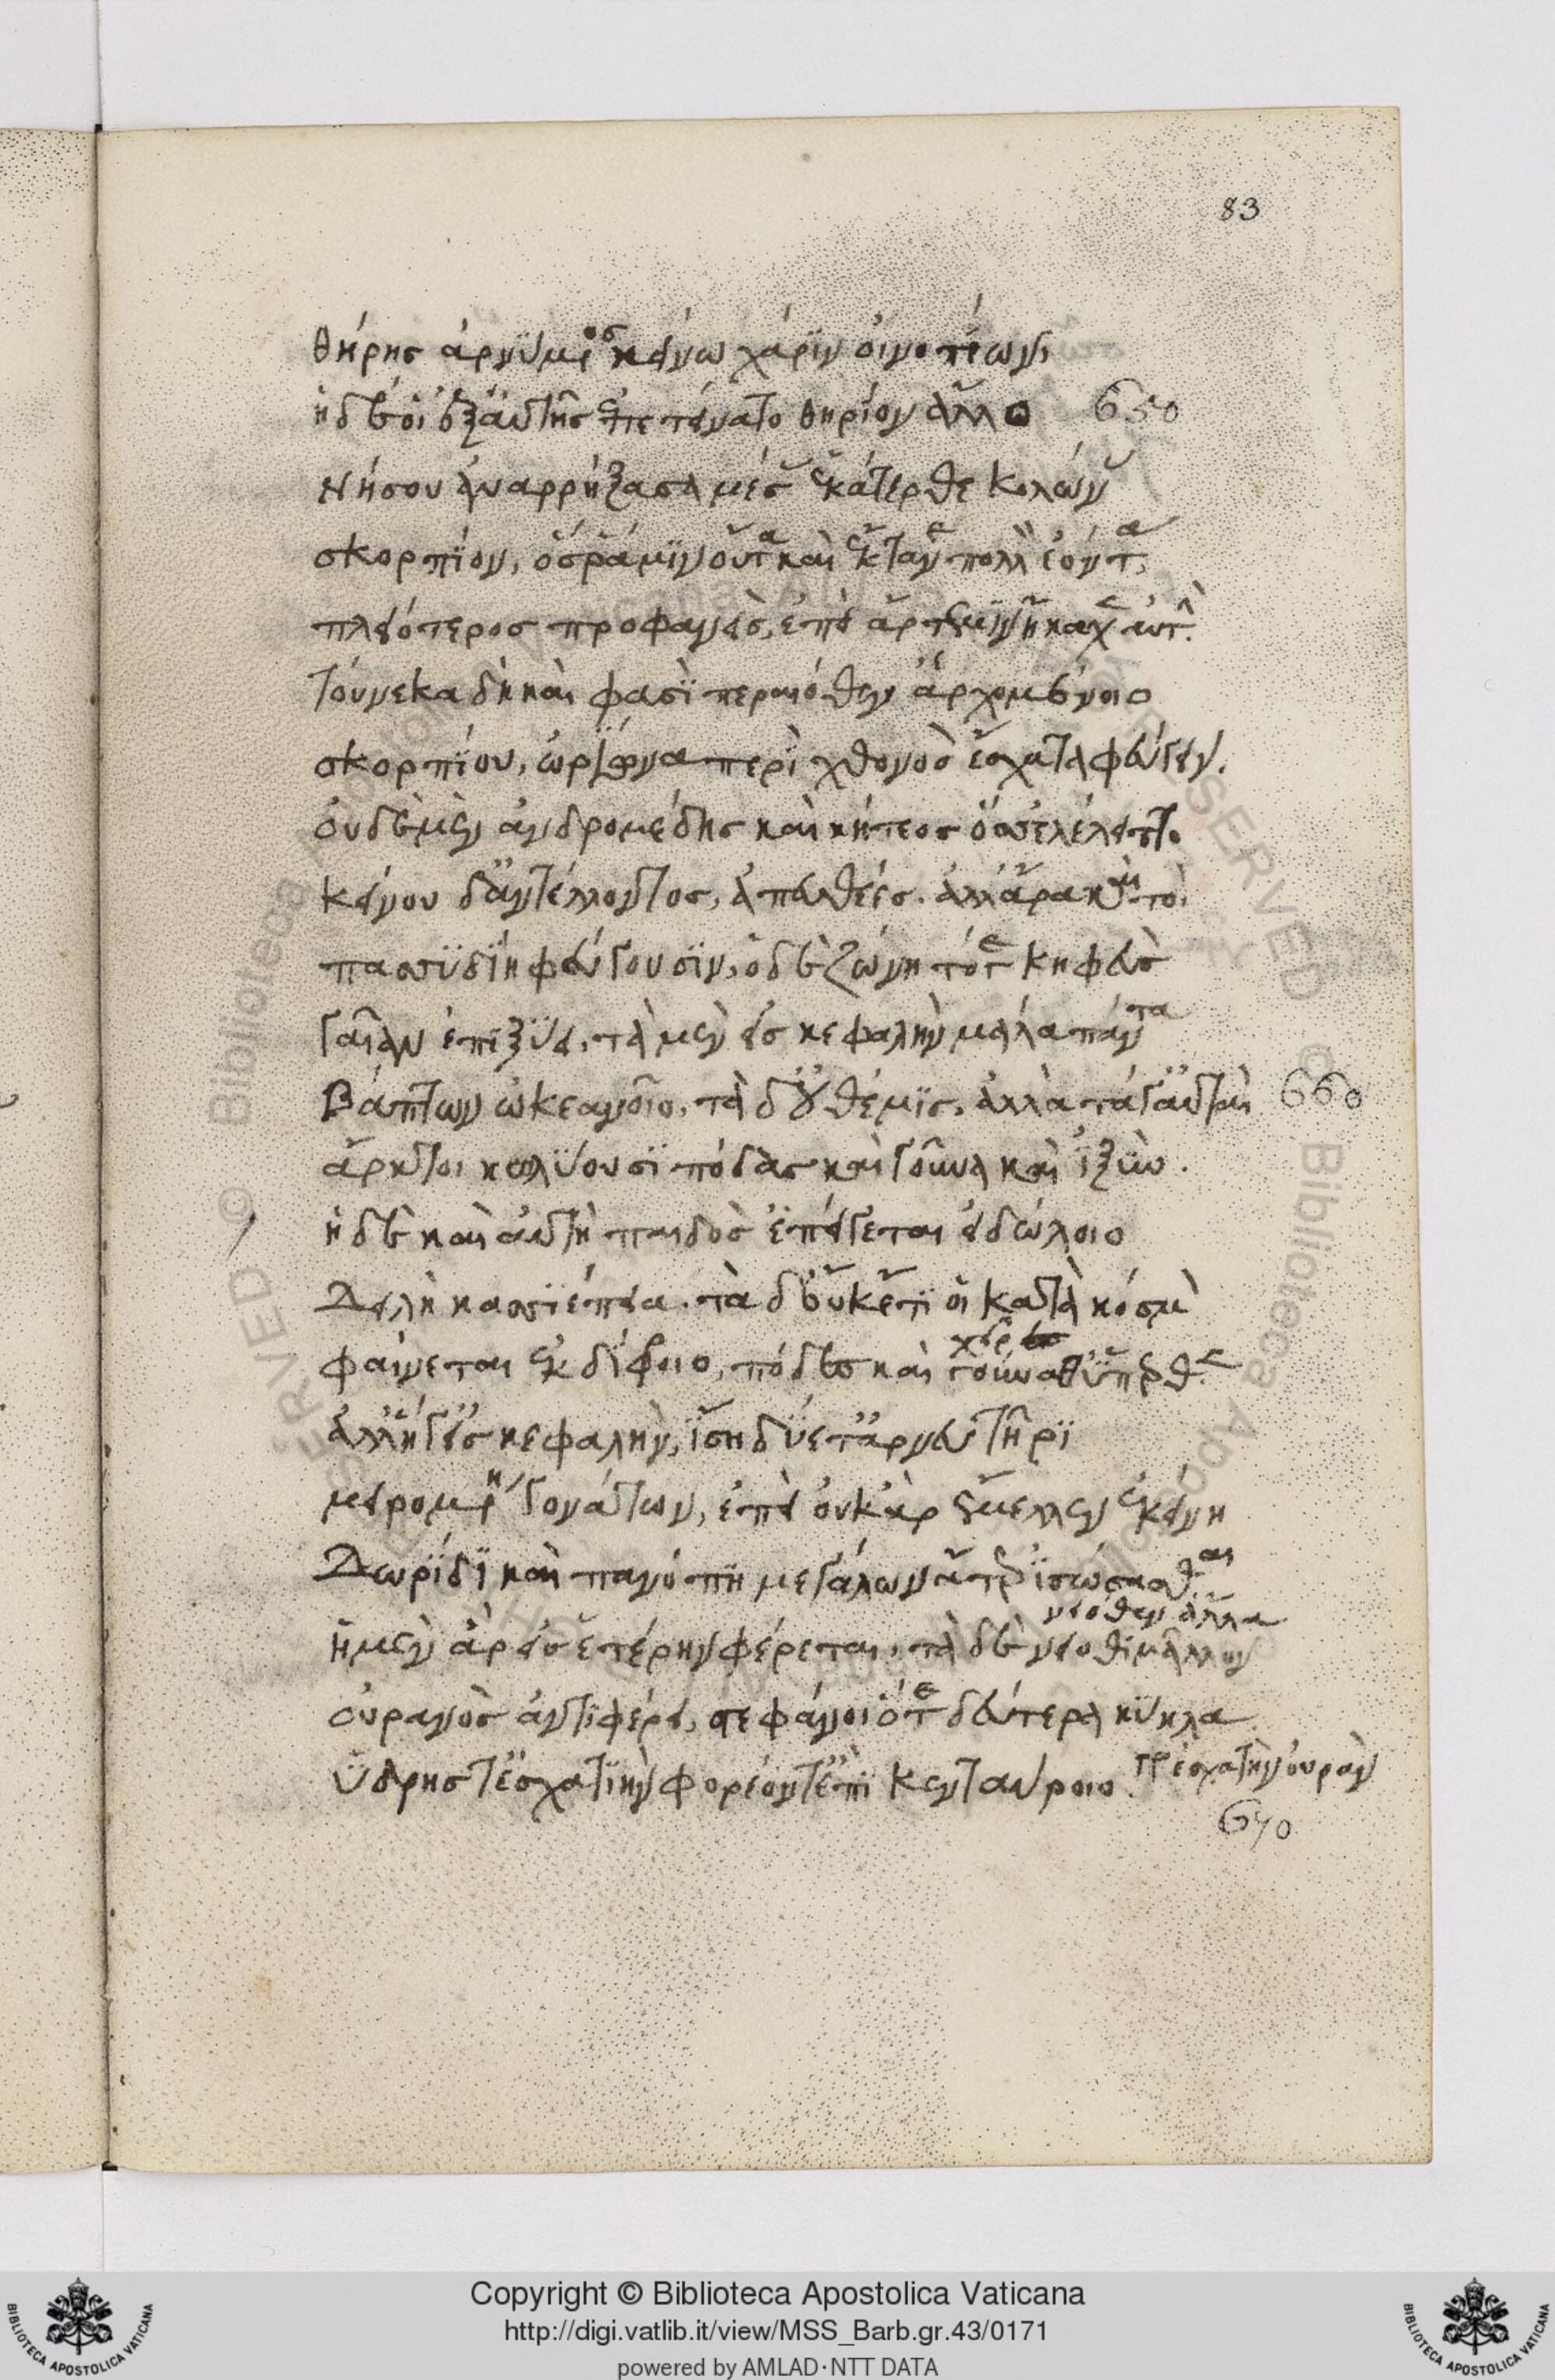 83
θήρης ἀρνύμενος κείνω χάριν οἰνοπίωνι
ἡ δέ οἱ ἐξαυτῆς ἐπετείνατο θηρίον ἄλλο 650
Νήσου ἀναρρήξασα μέσας ἑκάτερθε κολώνας
σκορπίον, ὅς ῥά μιν οὖτα καὶ ἔκτανε πολλὸν ἐόντα,
πλειότερος προφανεὶς, ἐπεὶ ἄρτεμιν ἤκαχεν αὐτήν.
τούνεκα δὴ καί φασι περαιόθεν ἀρχομένοιο
σκορπίου, ὠρίωνα περὶ χθονὸς ἔσχατα φεύγειν.
οὐδὲ μὲν ἀνδρομέδης καὶ κήτεος ὅσσ' ἐλέλειπτο
κείνου δ' ἀντέλλοντος, ἀπευθέες. ἀλλ' ἄρα καὶ τοὶ
πασσυδίῃ φεύγουσιν, ὁ δὲ ζώνῃ τότε κηφεὺς
γαῖαν ἐπιξύει, τὰ μὲν εἰς κεφαλὴν μάλα πάντα
Βάπτων ὠκεανοῖο, τὰ δ' οὐ θέμις, ἀλλὰ τά γ' αὐταὶ 660
ἄρκτοι κωλύουσι πόδας καὶ γοῦνα καὶ ἰξύν.
ἡ δὲ καὶ αὐτὴ παιδὸς ἐπείγεται εἰδώλοιο
Δειλὴ κασσιέπεια. τὰ δ' οὐκέτι οἱ κατὰ κόσμον
φαίνεται ἐκ δίφροιο, πόδες καὶ γούναθ' ὕπερθε
χεῖρες
ἀλλ' ἥ γ' εἰς κεφαλὴν, ἴση δύετ' ἀρνευτῆρι
μειρομένη γονάτων, ἐπεὶ οὐκ ἄρ' ἔμελλεν ἐκείνη
Δωρίδι καὶ πανόπῃ μεγάλων ἄτερ ἰσώσασθαι
νειόθεν ἄλλα
ἡ μὲν ἄρ' εἰς ἑτέρην φέρεται, τὰ δὲ νειόθι μᾶλλον
οὐρανὸς ἀντιφέρει, στεφάνοιό τε δεύτερα κύκλα
ὕδρης τ' ἐσχατιὴν φορέοντ' ἐπὶ κενταύροιο. ἐσχατὴν οὐρὰν
670
Copyright © Biblioteca Apostolica Vaticana
http://digi.vatlib.it/view/MSS_Barb.gr.43/0171
powered by AMLAD·NTT DATA